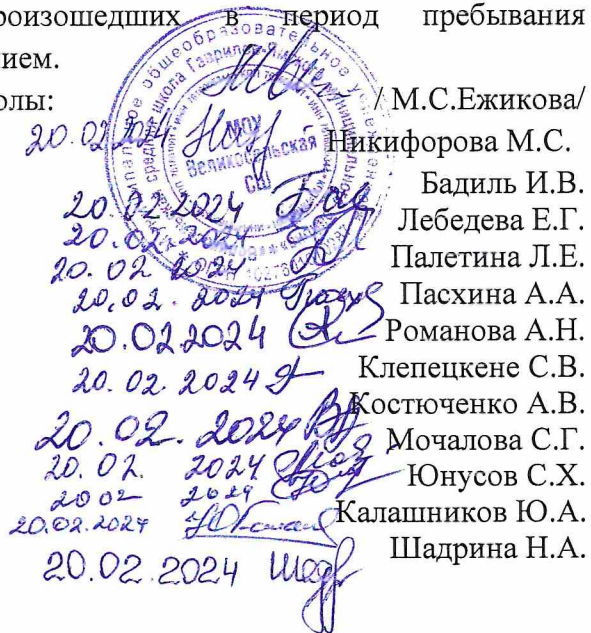 роизошедших в период пребывания
ием.
олы: / М.С.Ежикова/
20.02.2024 Никифорова М.С.
Бадиль И.В.
20.02.2024 Лебедева Е.Г.
20.02.2024 Палетина Л.Е.
20.02.2024 Пасхина А.А.
20.02.2024 Романова А.Н.
20.02.2024 Клепецкене С.В.
20.02.2024 Костюченко А.В.
20.02.2024 Мочалова С.Г.
20.02.2024 Юнусов С.Х.
20.02.2024 Калашников Ю.А.
20.02.2024 Шадрина Н.А.
20.02.2024
МОУ
Великосельская
СШ